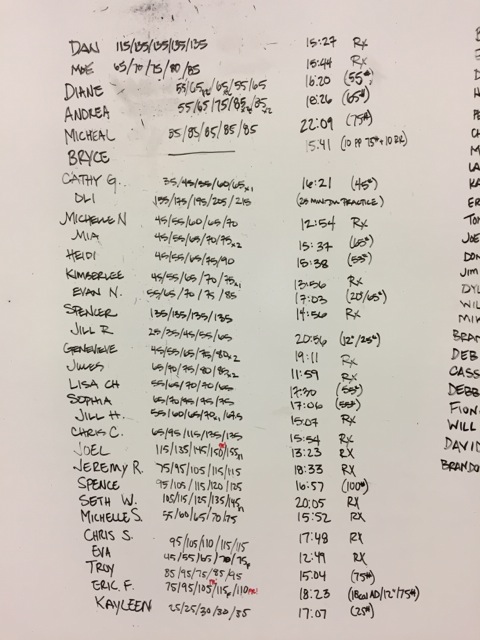 DAN 115/135/135/135/135 15:27 RX
MOE 65/70/75/80/85 15:44 RX
DIANE 55/65x2/65/55/65 16:20 (55#)
ANDREA 55/65/75/85x4/85x2 18:26 (65#)
MICHEAL 85/85/85/85 22:09 (75#)
BRYCE 15:41 (10 PP 75# + 10 BR)
CATHY G. 35/45/55/60/65x1 16:21 (45#)
OLI 155/175/195/205/215 (25 MIN PRACTICE)
MICHELLE N 45/55/60/65/70 12:54 RX
MIA 45/55/65/70/75x2 15:37 (65#)
HEIDI 45/55/65/75/90 15:38 (55#)
KIMBERLEE 45/55/65/70/75x1 13:56 RX
EVAN N. 55/65/70/75/85 17:03 (20"/65#)
SPENCER 135/135/135/135 14:56 RX
JILL R 25/35/45/55/65 20:56 (12"/25#)
GENEVIEVE 45/55/65/75/80x2 19:11 RX
JULES 65/70/75/80/85x2 11:59 RX
LISA CH 55/65/70/70/65 17:30 (55#)
SOPHIA 65/70/75/75 17:06 (55#)
JILL H. 55/60/65/70x1/67.5 15:07 RX
CHRIS C. 65/95/115/135/135 15:54 RX
JOEL 115/135/145/150/155x1 13:23 RX
JEREMY R. 75/95/105/115/115 18:33 RX
SPENCE 95/105/115/120/125 16:57 (100#)
SETH W. 105/115/125/135/145 20:05 RX
MICHELLE S. 55/60/65/70/75 15:52 RX
CHRIS S. 95/105/110/115/115 17:48 RX
EVA 45/55/65/70/75 12:49 RX
TROY 85/95/75/85/95 15:04 (75#)
ERIC. F. 75/95/105/115/110 PR! 18:23 (12"/75#)
KAYLEEN 25/25/30/30/35 17:07 (25#)